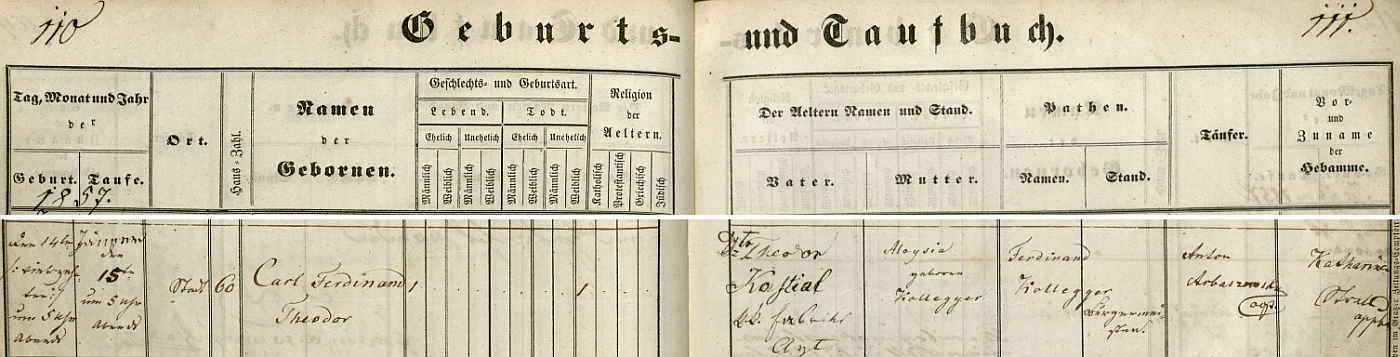 110
Geburts-
und Taufbuch.
111.
Tag, Monat und Jahr
der
Geburt. Taufe.
1857.
Ort.
Haus-Zahl.
Namen
der
Gebornen.
Geschlechts- und Geburtsart.
Lebend. Todt.
Ehelich Unehelich Ehelich Unehelich
Männlich Weiblich Männlich Weiblich Männlich Weiblich Männlich Weiblich
Religion
der
Aeltern.
Katholisch Protestantisch Griechisch Jüdisch
Der Aeltern Namen und Stand.
Vater. Mutter.
Pathen.
Namen. Stand.
Täufer.
Vor-
und
Zuname
der
Hebamme.
Den 14te
um 5 Uhr
Abends
Jänner
den
15te
um 5 Uhr
Abends
Stadt
60
Carl Ferdinand
Theodor
1
1
Theodor
Kostial
kk. Fabriks
Arzt
Aloysia
geboren
Kollegger
Ferdinand
Kollegger
Bürgermei-
ster
Anton
Katharina